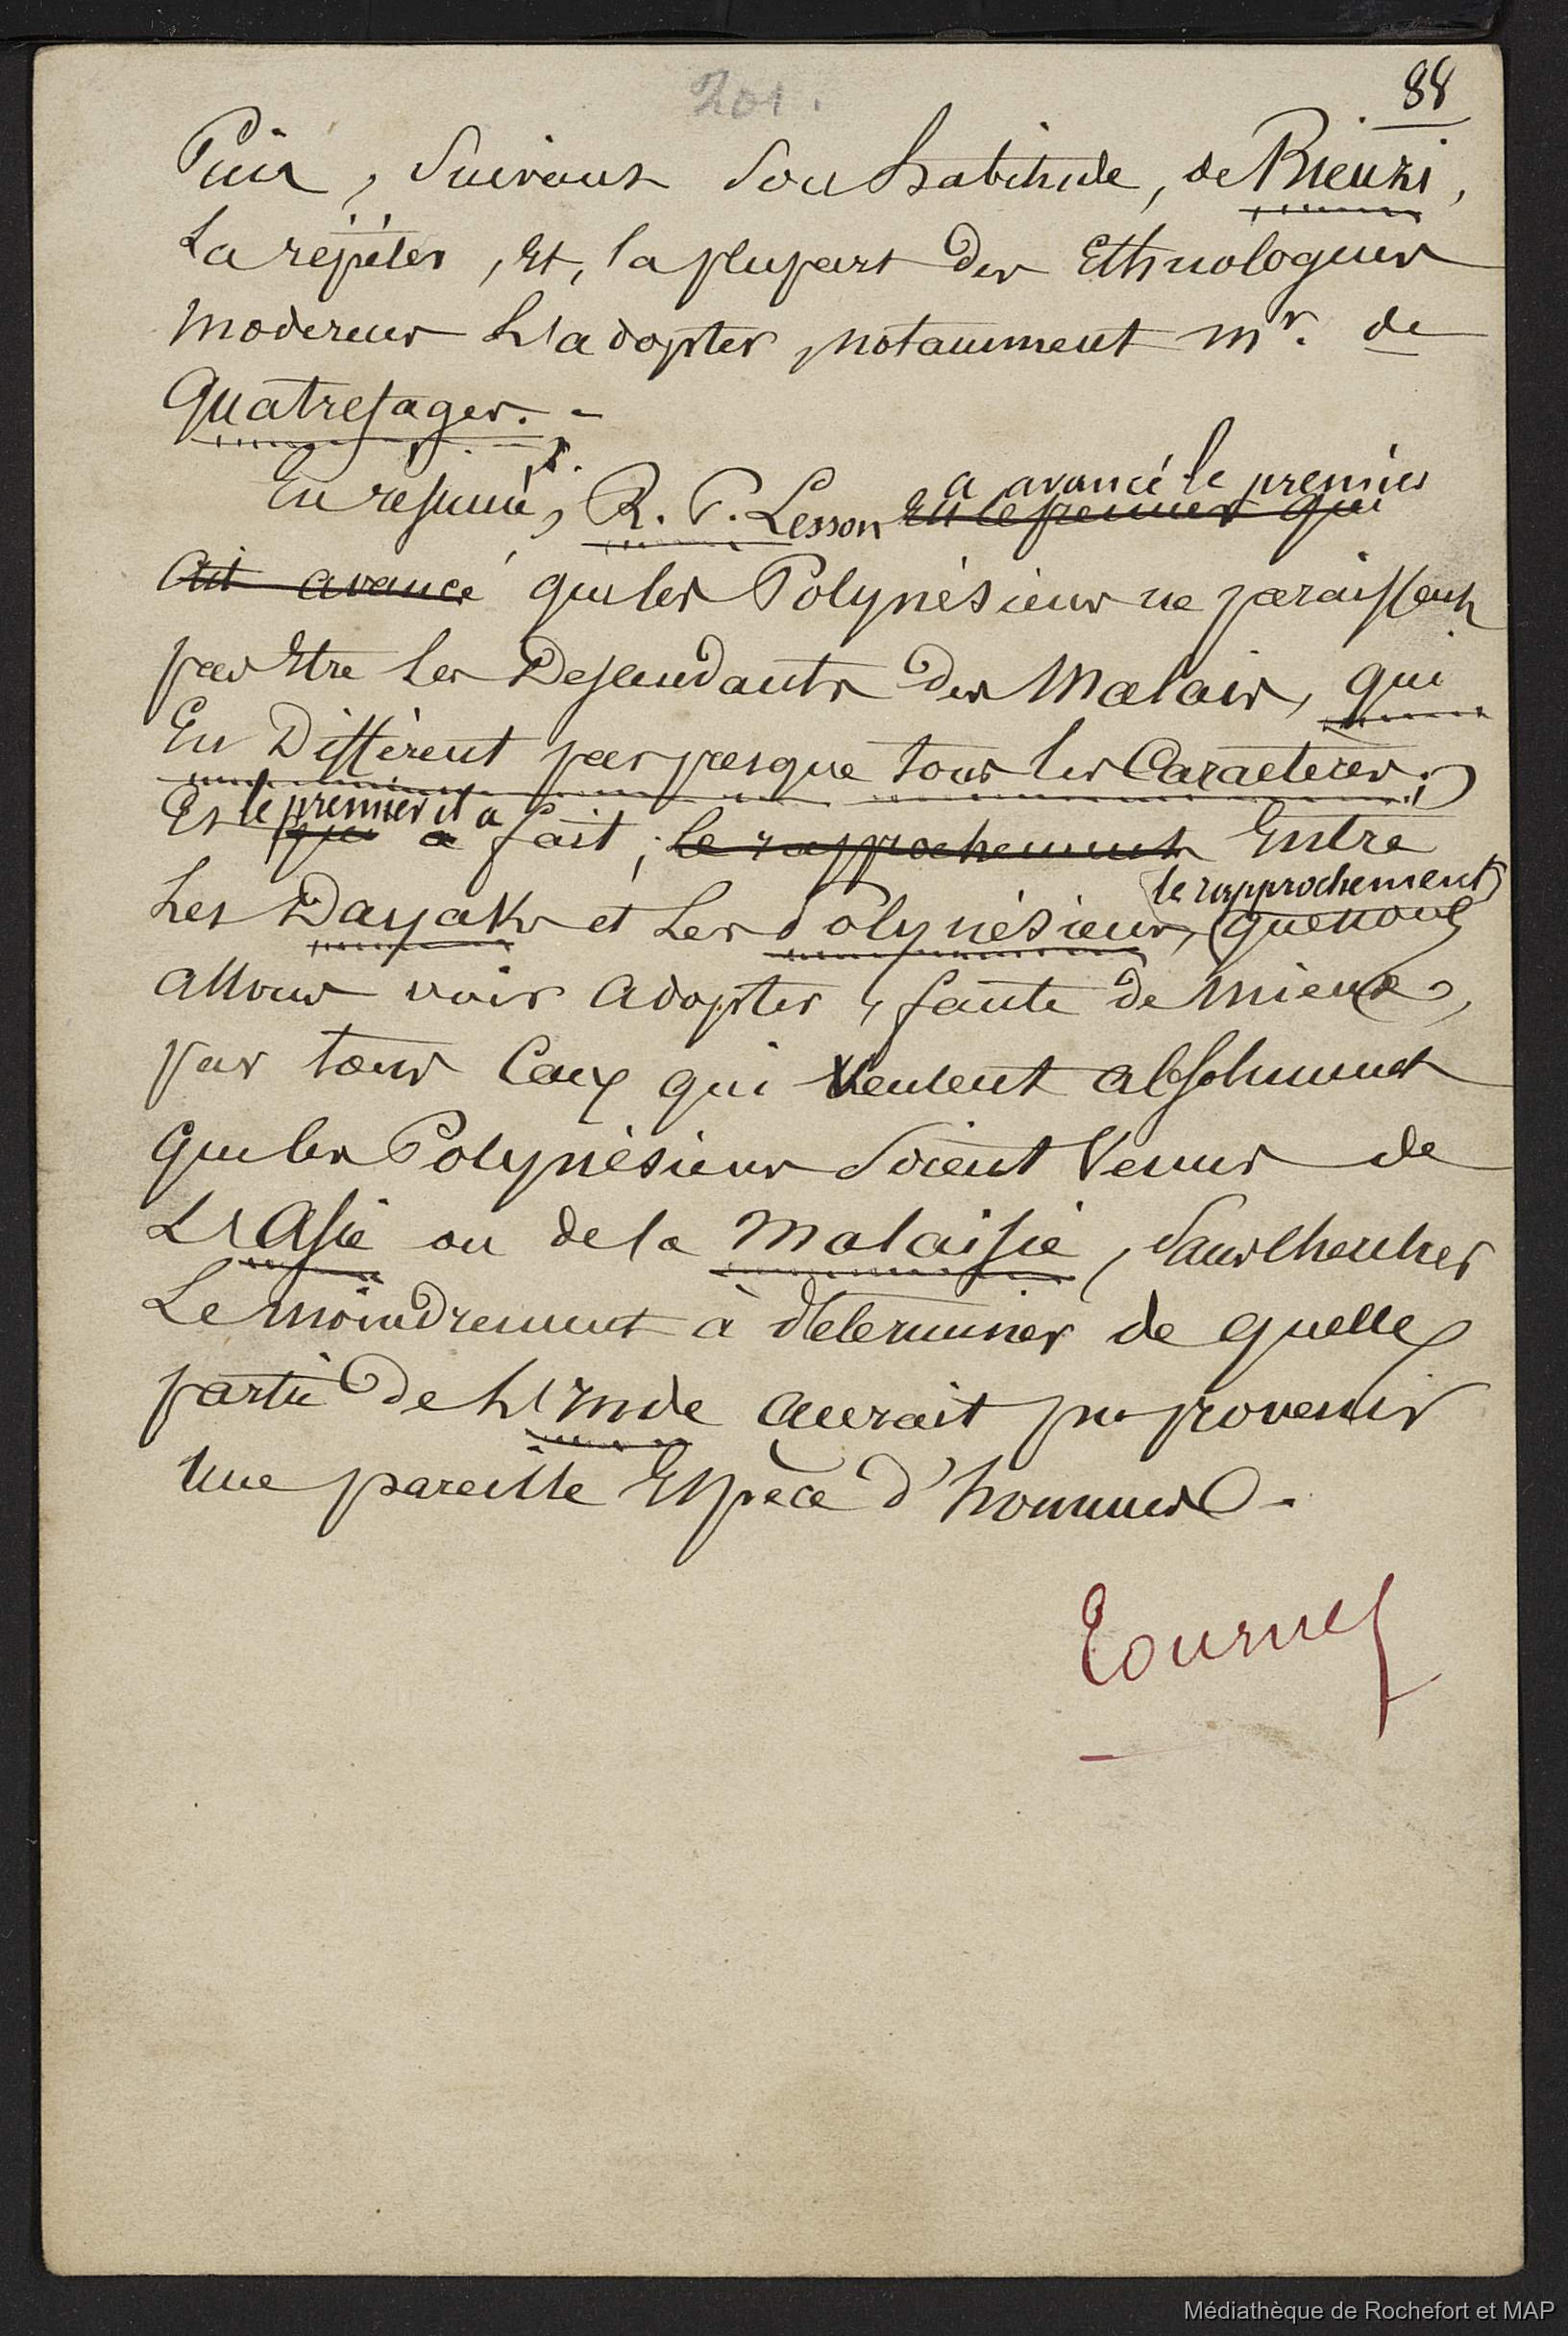 201.
88
Puis, suivant son habitude, de Rienzi,
La répéter, Et, la plupart des Ethnologues
modernes L'adopter, notamment mr. de
Quatrefages. -
a avancé le premier
En résumé, R. P. Lesson est le premier qui
ait avancé que les Polynésiens ne paraissent
pas Etre les Descendants des Malais, qui
En Différent par presque tous les Caractères;
le premier il a
Et qui a fait, le rapprochement Entre
le rapprochement
Les Dayaks et Les Polynésiens, que nous
allons voir adopter, faute de mieux,
par tous Ceux qui Veulent absolument
que les Polynésiens Soient Venus de
L'Asie ou de la Malaisie, Sans chercher
Le moindrement à déterminer de quelle
partie de L'Inde aurait pu provenir
Une pareille Espèce d'hommes -
Tournez
Médiathèque de Rochefort et MAP